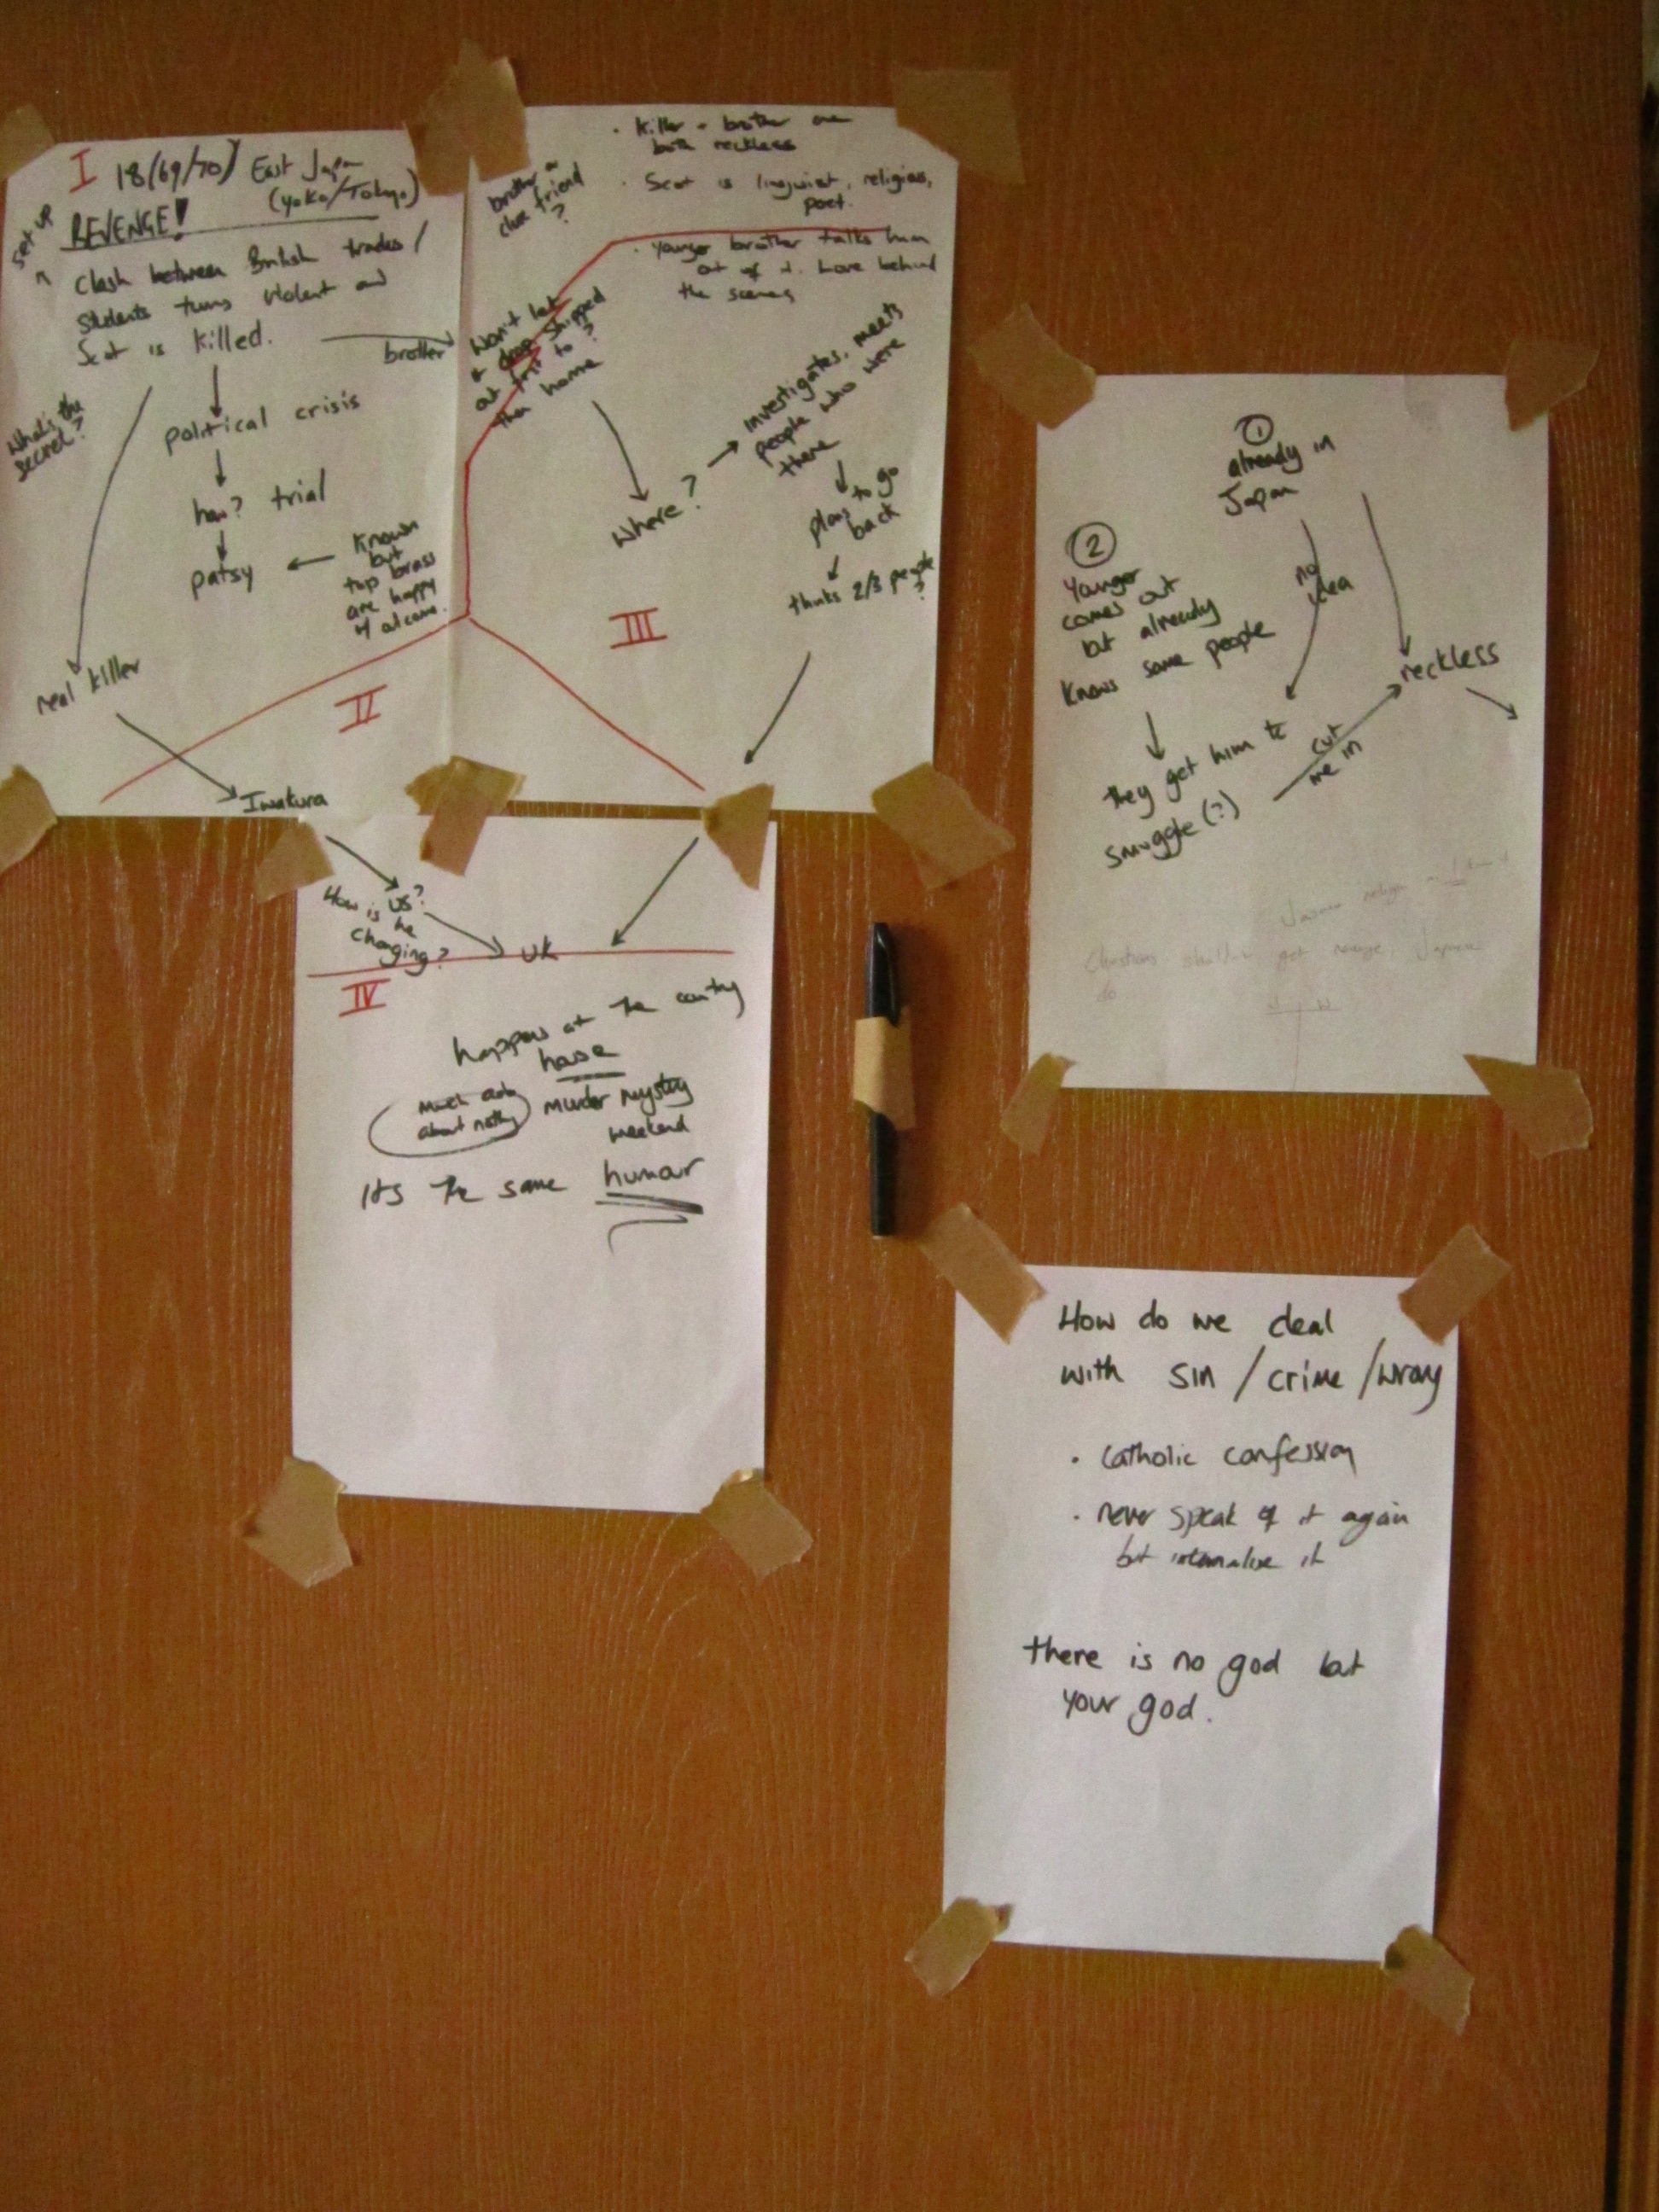 I 18(69/70) East Japan
(Yoko/Tokyo)
set up
REVENGE!
Clash between British trades/
students turns violent and
Scot is killed.
brother
What's the
secret?
political crisis
trial
patsy
known
but
top brass
are happy
w/ outcome.
real killer
II
Iwakura
brother or
close friend
?
• Killer + brother are
both reckless
• Scot is linguist, religious,
poet.
• Younger brother talks him
out of it. Love behind
the scenes
Won't let
shipped
out first to ?
then home
Where?
investigates, meets
people who were
there
plans to go
back
thinks 2/3 people
?
III
US?
How is he
changing?
UK
IV
happens at the country
house
Much ado
about nothing
murder mystery
weekend
It's the same humour
1
already in
Japan
no
idea
reckless
2
Younger
comes out
but already
knows some people
they get him to
smuggle (?)
cut
me in
Christians shouldn't get revenge, Japanese
do
How do we deal
with sin / crime / wrong
• Catholic confession
• never speak of it again
but internalise it
there is no god but
your god.